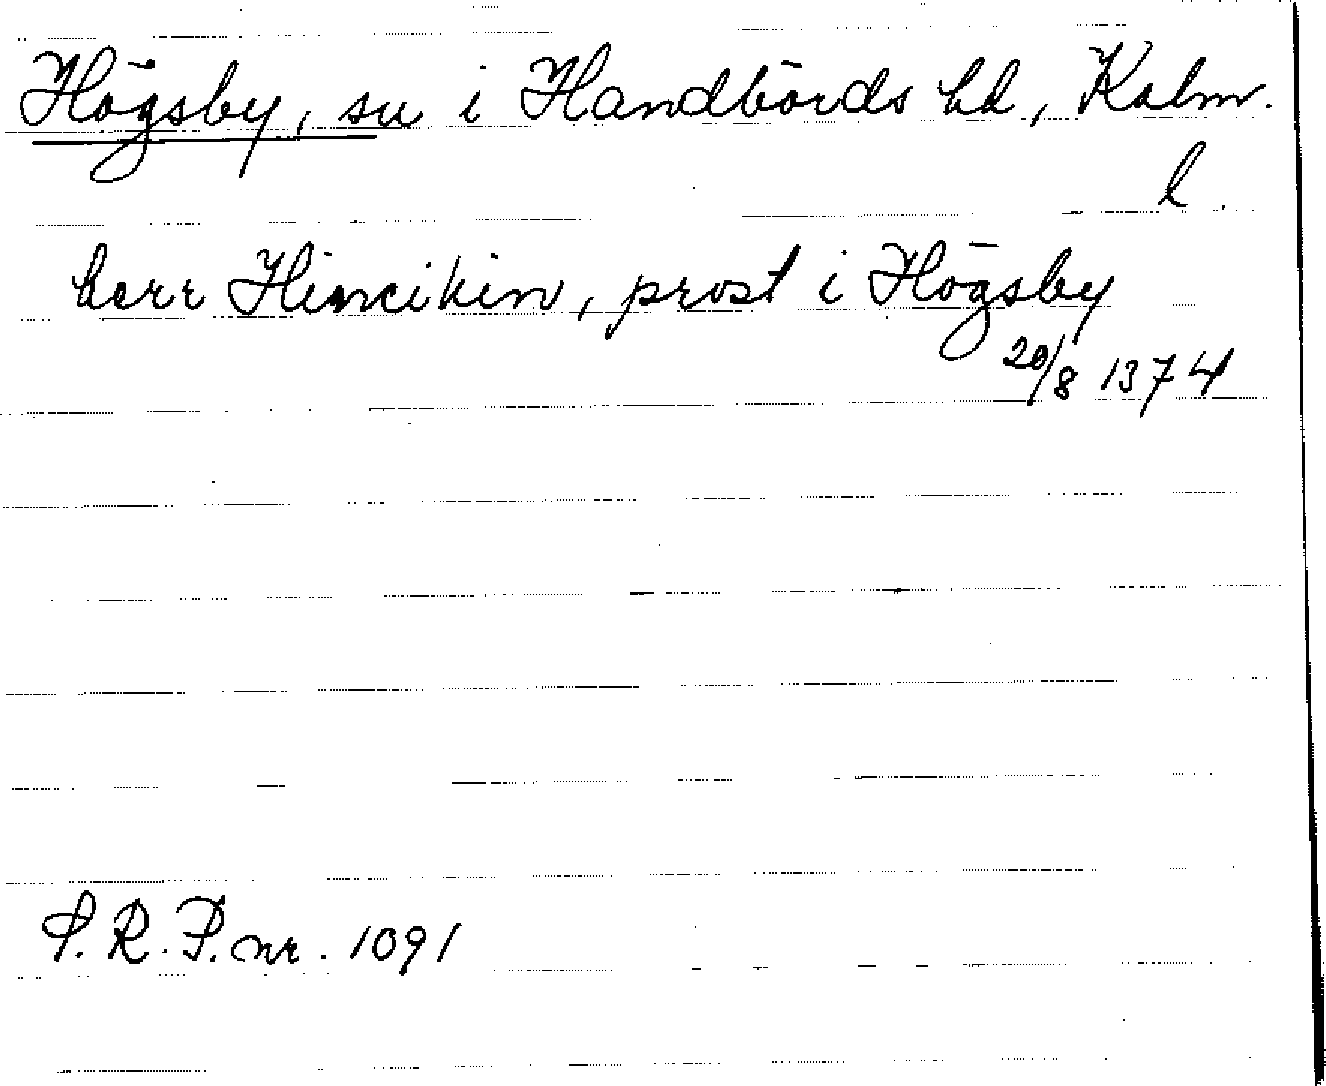 Högsby, sn i Handbörds hd, Kalm.
l.
herr Hincikin, prost i Högsby
20/8 1374
S.R.P. nr. 1091